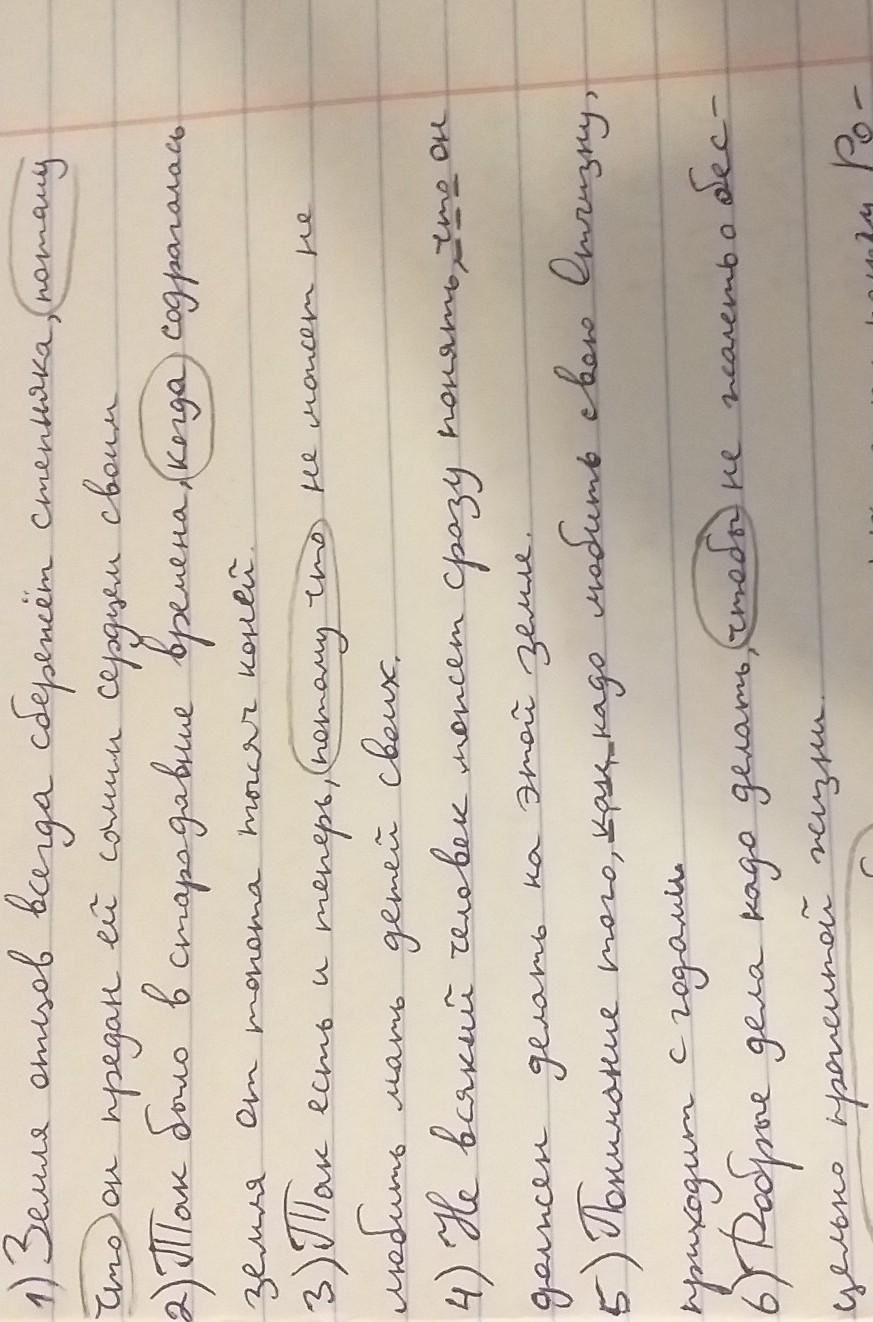 1) Земля отцов всегда сбережёт степняка, потаму
что он предан ей самим сердцем своим
2) Так было в стародавние времена, когда содрагалась
земля от топота тысяч коней.
3) Так есть и теперь, потому что не может не
любить мать детей своих.
4) Не всякий человек может сразу понять, что он
должен делать на этой земле.
5) Понимание того, как надо любить свою Отчизну,
приходит с годами.
6) Добрые дела надо делать, чтобы не жалеть о бес-
цельно прожитой жизни.
Ро-